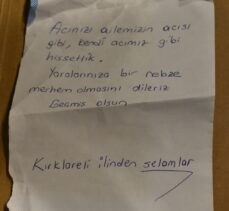 Acınızı ailemizin acısı
gibi, kendi acımız gibi
hissettik.
Yaralarınıza bir nebze
merhem olmasını dileriz
Geçmiş olsun
Kırklareli ilinden selamlar